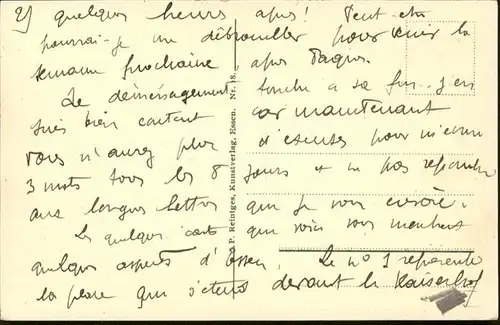 2) quelques heures après! Peut-être
pourrai-je me débrouiller pour venir la
semaine prochaine, après Pâques.
Le déménagement touche à sa fin. J'en
suis bien content car maintenant
vous n'aurez plus d'excuses pour m'écrire
3 mots tous les 8 jours et ne pas répondre
aux longues lettres que je vous envoie.
Les quelques cartes que voici vous montrent
quelques aspects d'Essen. Le no 1 représente
la place qui s'étend devant le Kaiserhof
P. Reintges, Kunstverlag, Essen. Nr. 18.